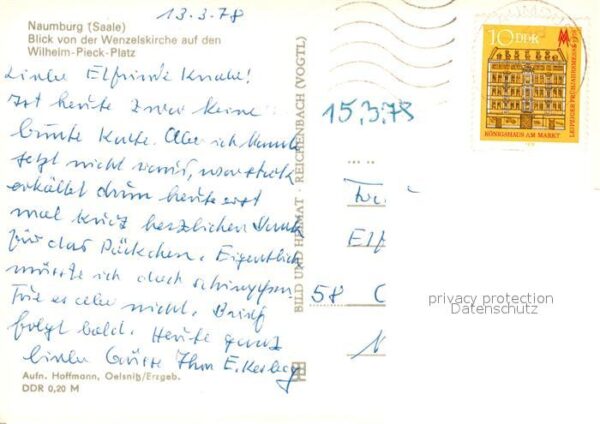 13.3.78
Naumburg (Saale)
Blick von der Wenzelskirche auf den
Wilhelm-Pieck-Platz
Liebe Elfriede Knabe!
Ist heute zwar keine
bunte Karte. Aber ich konnte
jetzt nicht raus, war stark
erkältet drum heute erst
mal kurz herzlichen Dank
für das Päckchen. Eigentlich
müsste ich doch schimpfen.
Tue es aber nicht. Brief
folgt bald. Heute ganz
liebe Grüsse Ihre E.
Aufn. Hoffmann, Oelsnitz/Erzgeb.
DDR 0,20 M
BILD UND HEIMAT · REICHENBACH (VOGTL)
15.3.78
10 DDR
KÖNIGSHAUS AM MARKT
LEIPZIGER FRÜHJAHRSMESSE 1978
Elf
58 
privacy protection
Datenschutz